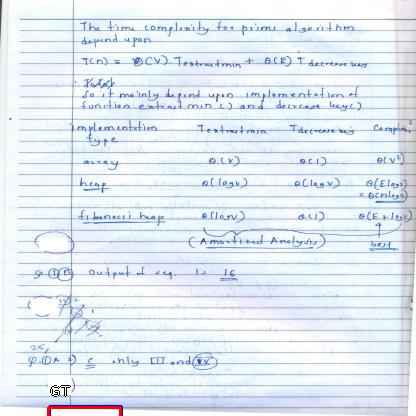 The time complexity for prims algorithm
depend upon
T(n) = θ(V) Textractmin + θ(E) Tdecreasekey
So it mainly depend upon implementation of
function extractmin() and decrease key()
Implementation Textractmin Tdecreasekey
type
array θ(V) θ(1) θ(V²)
heap θ(logV) θ(logV) θ(Elogv)
fibonacci heap θ(logV) θ(1) θ(E + logv)
(Amortized Analysis) best
Output of seq. is 16
C only III and IV
GT